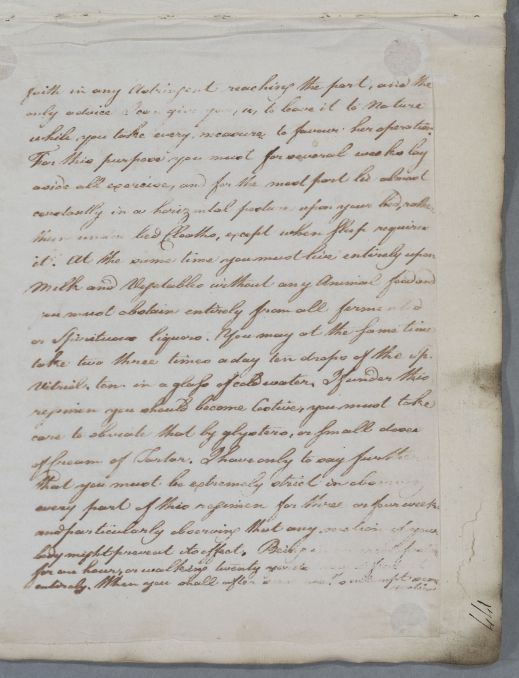 faith in any Astringent reaching the part, and the
only advice I can give you, is, to leave it to Nature
while you take every measure to favour her operation
For this purpose you must for several weeks lay
aside all exercise, and for the most part lie almost
constantly in a horizontal posture upon your bed, rather
than under bed Cloaths, except when Sleep requires
it. At the same time you must live entirely upon
Milk and Vegetables without any Animal food and
must abstain entirely from all fermented
or Spirituous liquors. You may at the same time
take two three times a day ten drops of the Sp.
Vitriol. ten. in a glass of cold water. If under this
regimen you should become Costive, you must take
care to obviate that by glysters, or small doses
of Cream of Tartar. I have only to say further
that you must be extremely strict in observing
every part of this regimen for three or four weeks
and particularly observing that any motion of your
body might prevent its effect. Being
for one hour, or walking twenty yards
entirely. When you shall after attempt some
44